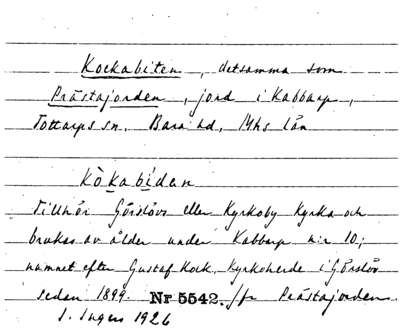 Kockabiten, detsamma som
Prästajorden, jord i Kabbarp,
Tottarps sn, Bara hd, Mhs län
Kòkabídan
Tillhör Görslövs eller Kyrkoby Kyrka och
brukas av ålder under Kabbarp n:r 10;
namnet efter Gustaf Kock, Kyrkoherde i Görslöv
sedan 1899. Nr 5542. /fr Prästajorden.
I. Ingers 1926